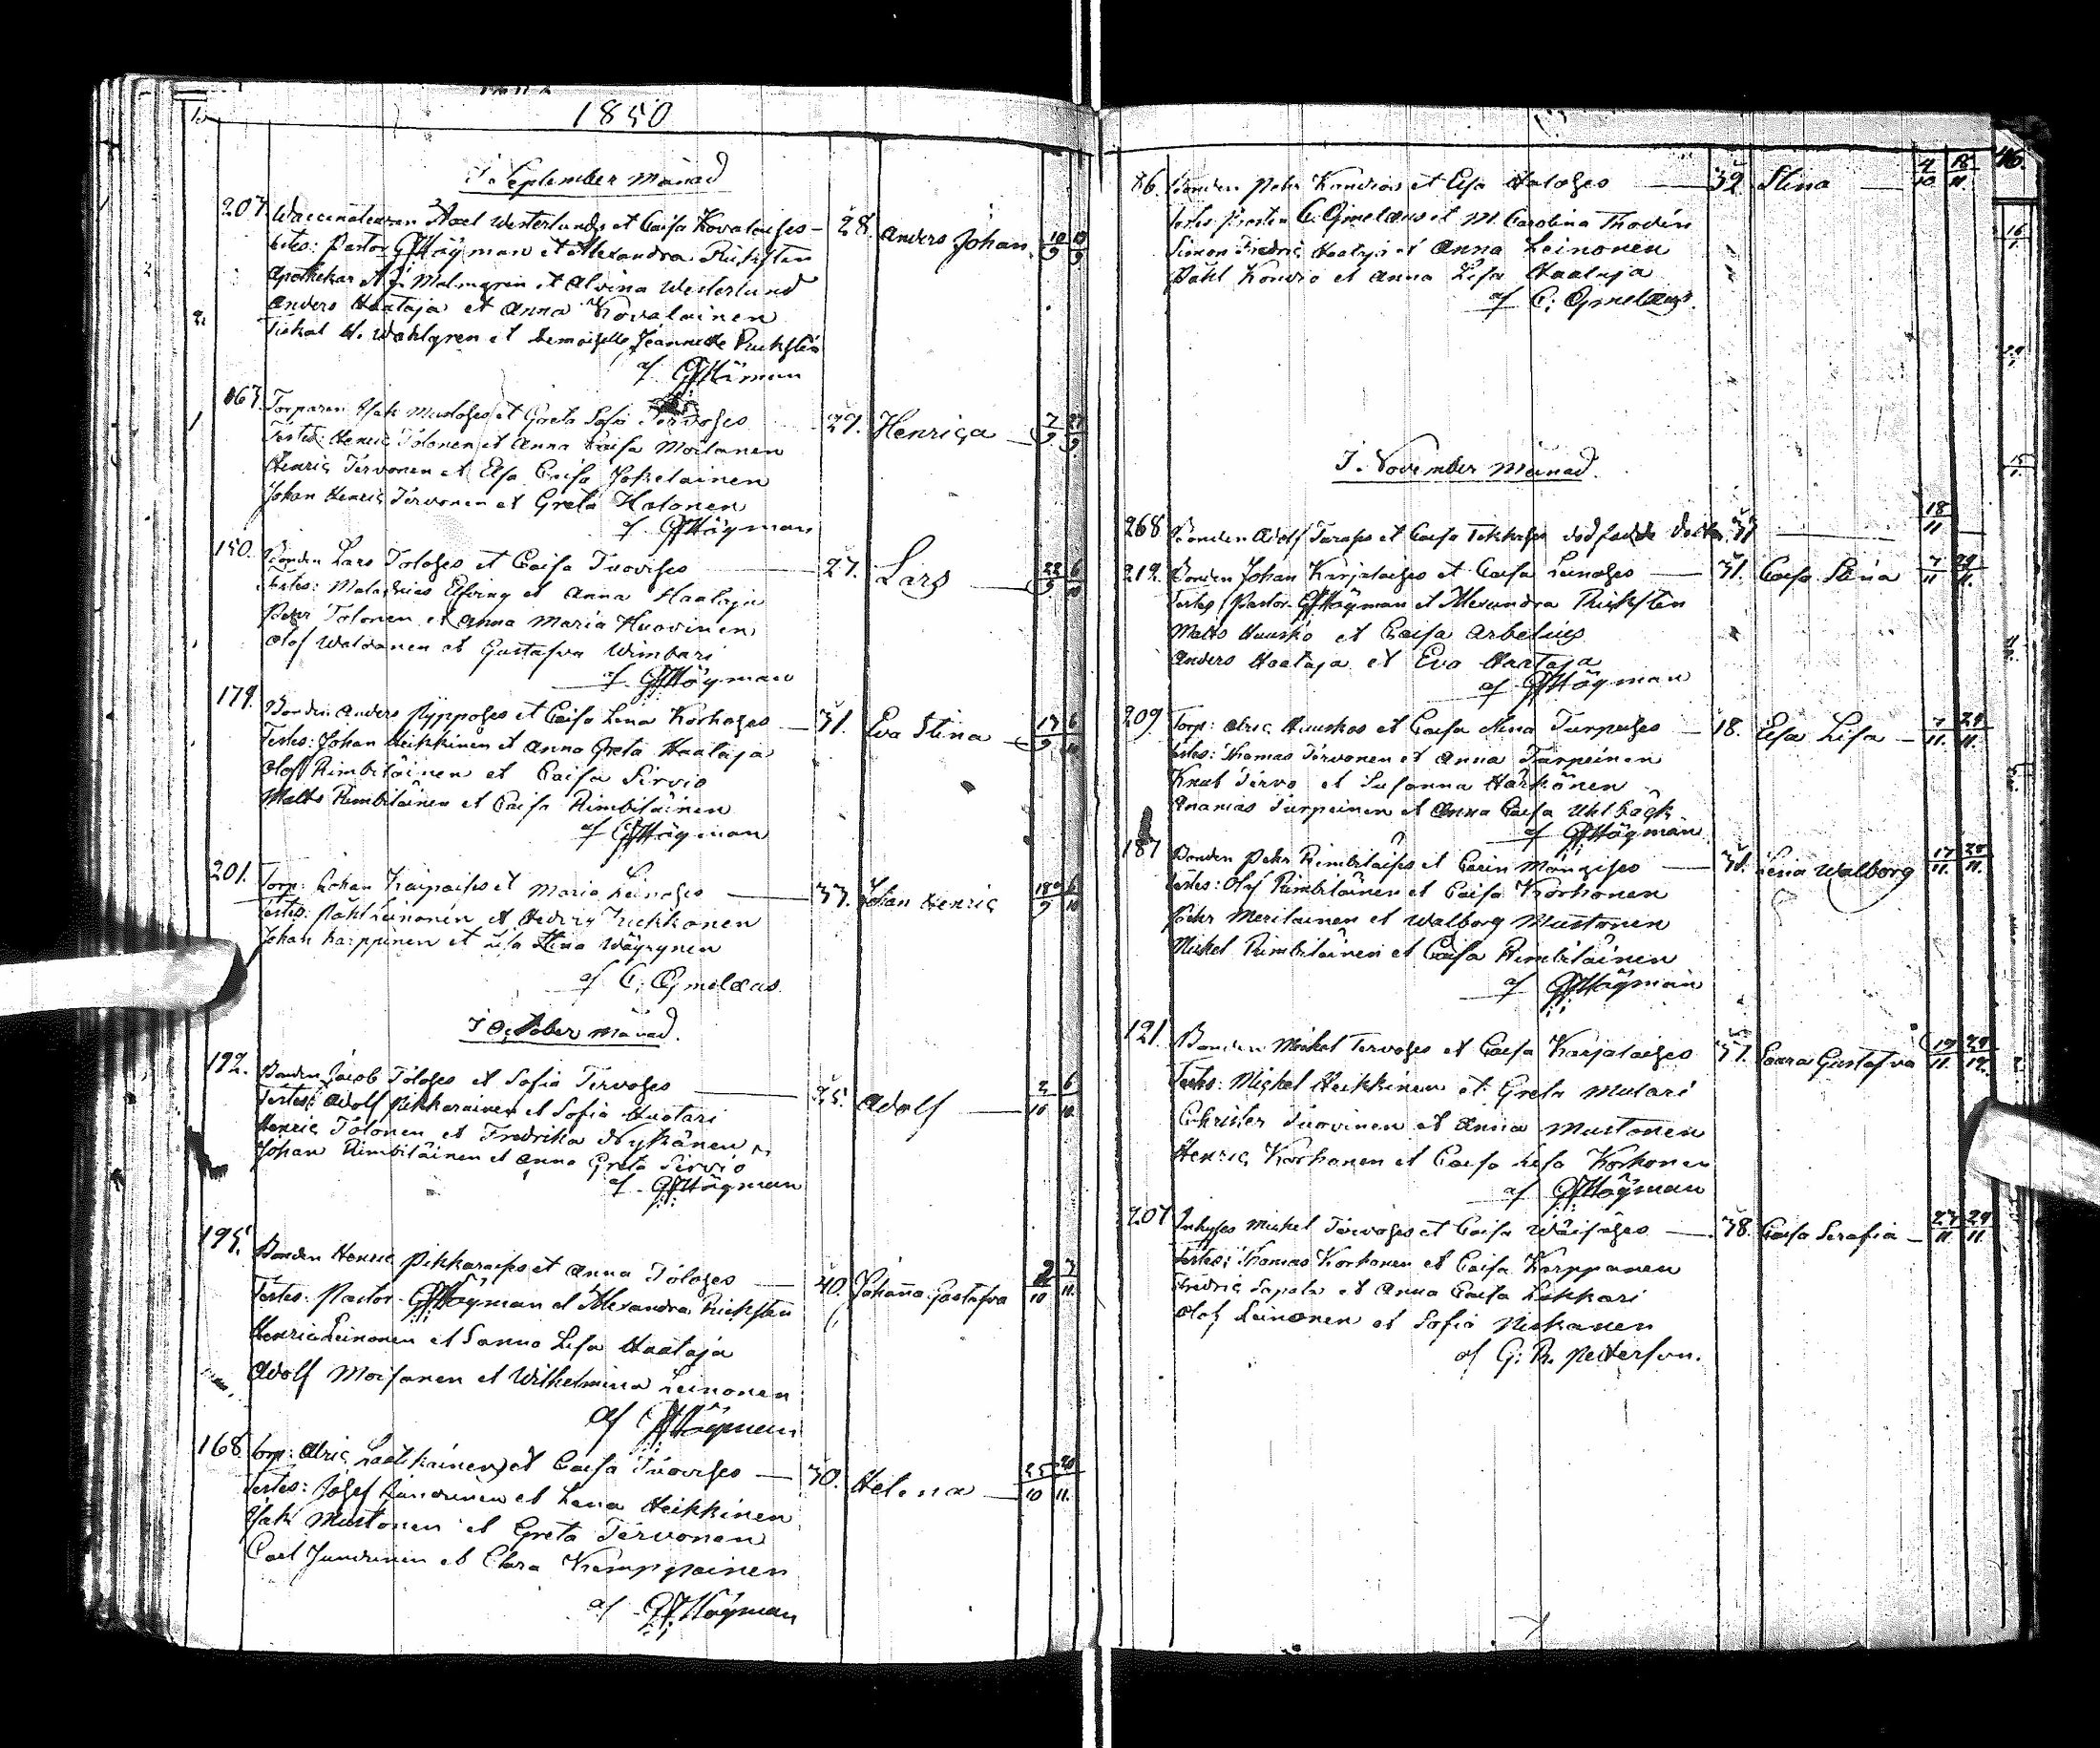 1850
I September månad
207. Waccinateuren Axel Westerlunds et Caisa Kovalaises 28. Anders Johan 10/9 19/9
testes: Pastor GFHögman et Alexandra Ricksten
Apothekar A. J. Malmgren et Alvina Westerlund
Anders Haataja et Anna Kovalainen
Fiskal H. Wahlgren et Demoiselle Jeannette
af GFHögman
167. Torparen Isak Mustoses et Greta Sofia Tervoses 29. Henrica 7/9 27/9
Testes: Henric Tolonen et Anna Caisa Moilanen
Henric Tervonen et Elsa Caisa Jokelainen
Johan Henric Tervonen et Greta Halonen
af GFHögman
150. Bonden Lars Toloses et Caisa Tuovises 27. Lars 22/9 6/10
Testes: Malachias Elfving et Anna Haataja
Pehr Tolonen et Anna Maria Huovinen
Olof Waldanen et Gustafva Wimbari
af GFHögman
179. Bonden Anders Pypposes et Caisa Lena Korhoses 31. Eva Stina 13/9 6/10
Testes: Johan Heikkinen et Anna Greta Haataja
Olof Rimbiläinen et Caisa Sirviö
Matts Rimbiläinen et Caisa Rimbiläinen
af GFHögman
201. Torp: Johan Karpaises et Maria Leinoses 33. Johan Henric 18/9 6/10
Testes: Påhl Leinonen et Hedvig Kukkonen
Johan Karppinen et Lisa Stina Wäyrynen
af C. Gmelæus.
I October månad.
192. Bonden Jacob Toloses et Sofia Tervoses 35. Adolf 2/10 6/10
Testes: Adolf Pikkarainen et Sofia Huotari
Henric Tolonen et Fredrika Nykänen
Johan Rimbiläinen et Anna Greta Sirviö
af GFHögman
195. Bonden Henric Pikkaraises et Anna Toloses 40. Johanna Gustafva 2/10 3/11
Testes: Pastor GFHögman et Alexandra Ricksten
Henric Leinonen et Sanna Lisa Haataja
Adolf Moisanen et Wilhelmina Leinonen
af GFHögman
168. Torp: Alric Laatikainen et Caisa Tuovises 30. Helena 25/10 20/11
Testes: Josef Juntunen et Lena Heikkinen
Isak Mustonen et Greta Tervonen
Carl Juntunen et Clara Kemppainen
af GFHögman
46.
86. Bonden Pehr Kondios et Elsa Haloses 32. Stina 4/10 18/11
Testes: Prosten C. Gmelæus et M. Carolina Thodén
Simon Fredric Haataja et Anna Leinonen
Påhl Kondio et Anna Lisa Haataja
af C. Gmelæus.
I November månad.
268. Bonden Adolf et Caisa dödfödde dotter 37 18/11
212. Bonden Johan Karjalaises et Caisa Leinoses 31. Caisa Stina 7/11 29/11
Testes: Pastor GFHögman et Alexandra Ricksten
Matts Huusko et Caisa Arbelius
Anders Haataja et Eva Haataja
af GFHögman
209. Torp: Alric Huuskos et Caisa Stina Turpeises 18. Elsa Lisa 7/11 29/11
Testes: Thomas Tervonen et Anna Turpeinen
Knut Tervo et Susanna Härkönen
Ananias Turpeinen et Anna Caisa Uhlbäck
af GFHögman
187. Bonden Pehr Rimbiläises et Carin Mängises 38. Lena Walborg 17/11 28/11
Testes: Olof Rimbiläinen et Caisa Korhonen
Pehr Meriläinen et Walborg Mustonen
Mickel Rimbiläinen et Caisa Rimbiläinen
af GFHögman
121. Bonden Mickel Tervoses et Caisa Karjalaises 37. Saara Gustafva 19/11 29/12
Testes: Mickel Heikkinen et Greta Mulari
Christer Tuovinen et Anna Mustonen
Henric Korhonen et Caisa Lisa Korhonen
af GFHögman
207. Inhyses Mickel Tervoses et Caisa Wäisäses 38. Caisa Serafia 23/11 29/11
Testes: Thomas Korhonen et Caisa Karppanen
Fredric Sapola et Anna Caisa Likkari
Olof Leinonen et Sofia Niskanen
af G. R. Petterson.